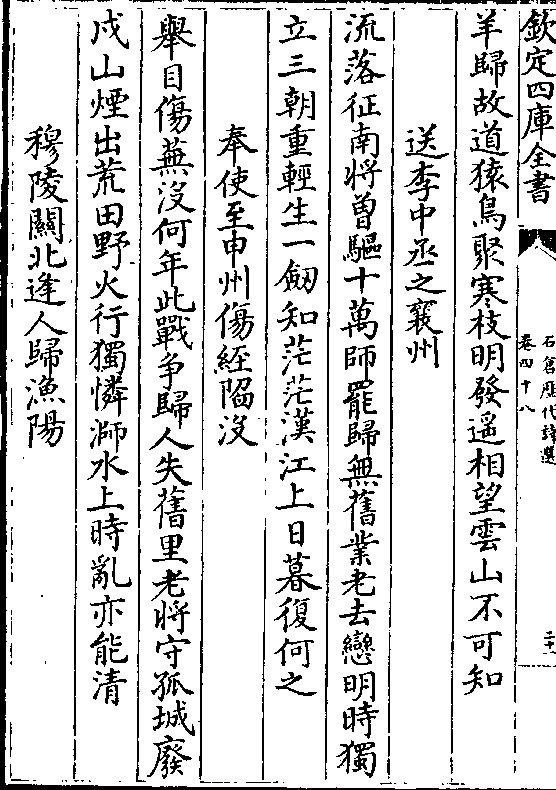 欽定四庫全書
石倉歷代詩選
卷四十八
二十一
羊歸故道猿鳥聚寒枝明發遥相望雲山不可知
送李中丞之襄州
流落征南將曽驅十萬師罷歸無舊業老去戀明時獨
立三朝重輕生一劒知茫茫漢江上日暮復何之
奉使至申州傷經陷没
舉目傷蕪没何年此戰争歸人失舊里老將守孤城廢
戍山煙出荒田野火行獨憐㴲水上時亂亦能清
穆陵關北逢人歸漁陽